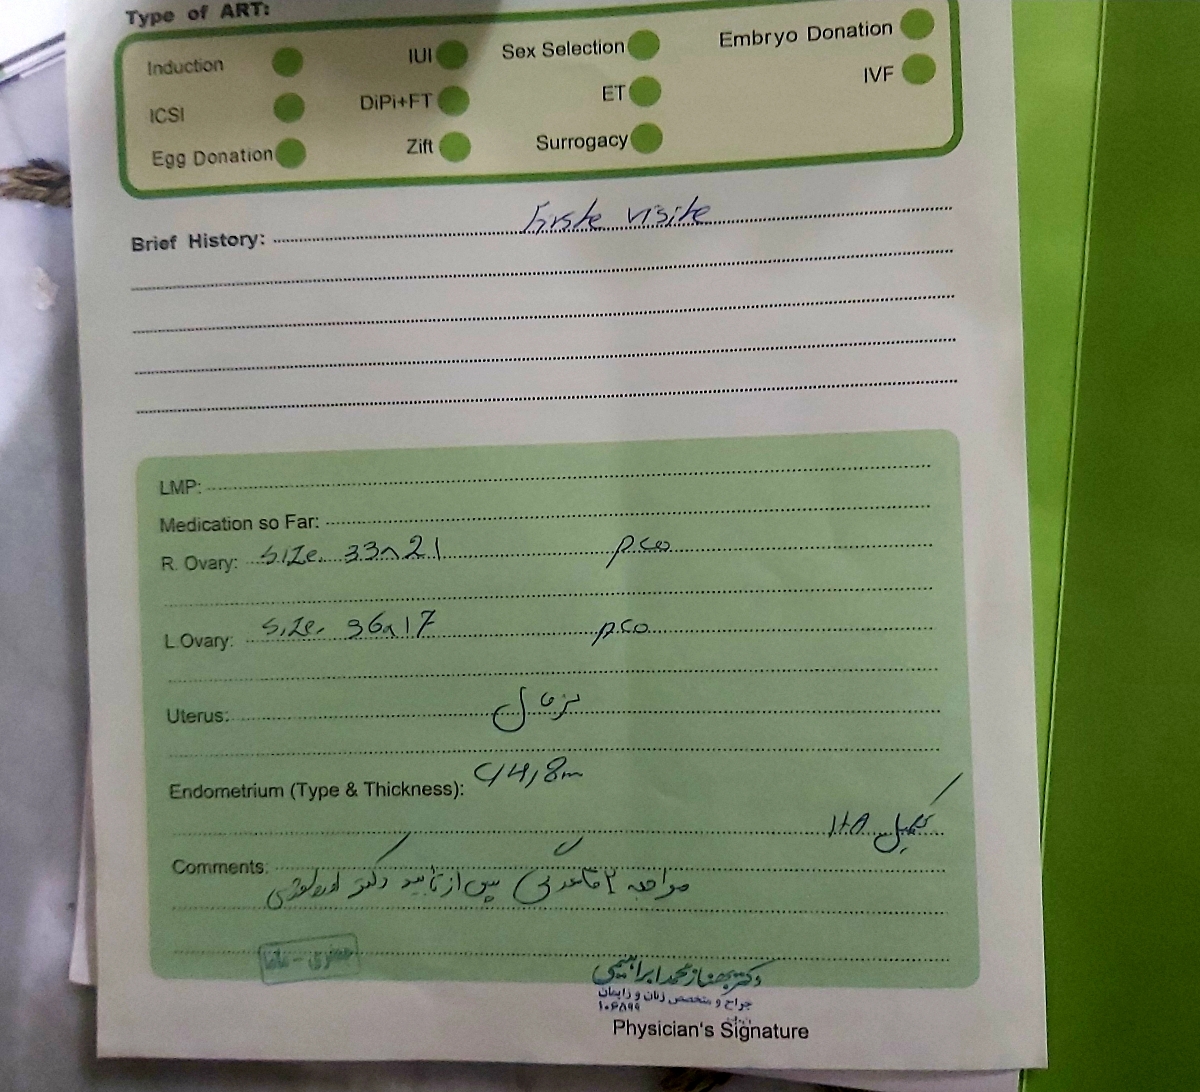 Type of ART:
Induction IUI Sex Selection Embryo Donation
ICSI DiPi+FT ET IVF
Egg Donation Zift Surrogacy
Brief History: firste visite
LMP:
Medication so Far:
R. Ovary: size. 33x21 pco
L.Ovary: size. 36x17 pco
Uterus: نرمال
Endometrium (Type & Thickness): 4,8m
تکمیل
Comments:
مراجعه ۲ قاعدگی پس از تایید دکتر اورولوژی
دکتر بهناز محمدابراهیمی
جراح و متخصص زنان و زایمان
۱۰۶۸۹۹
Physician's Signature